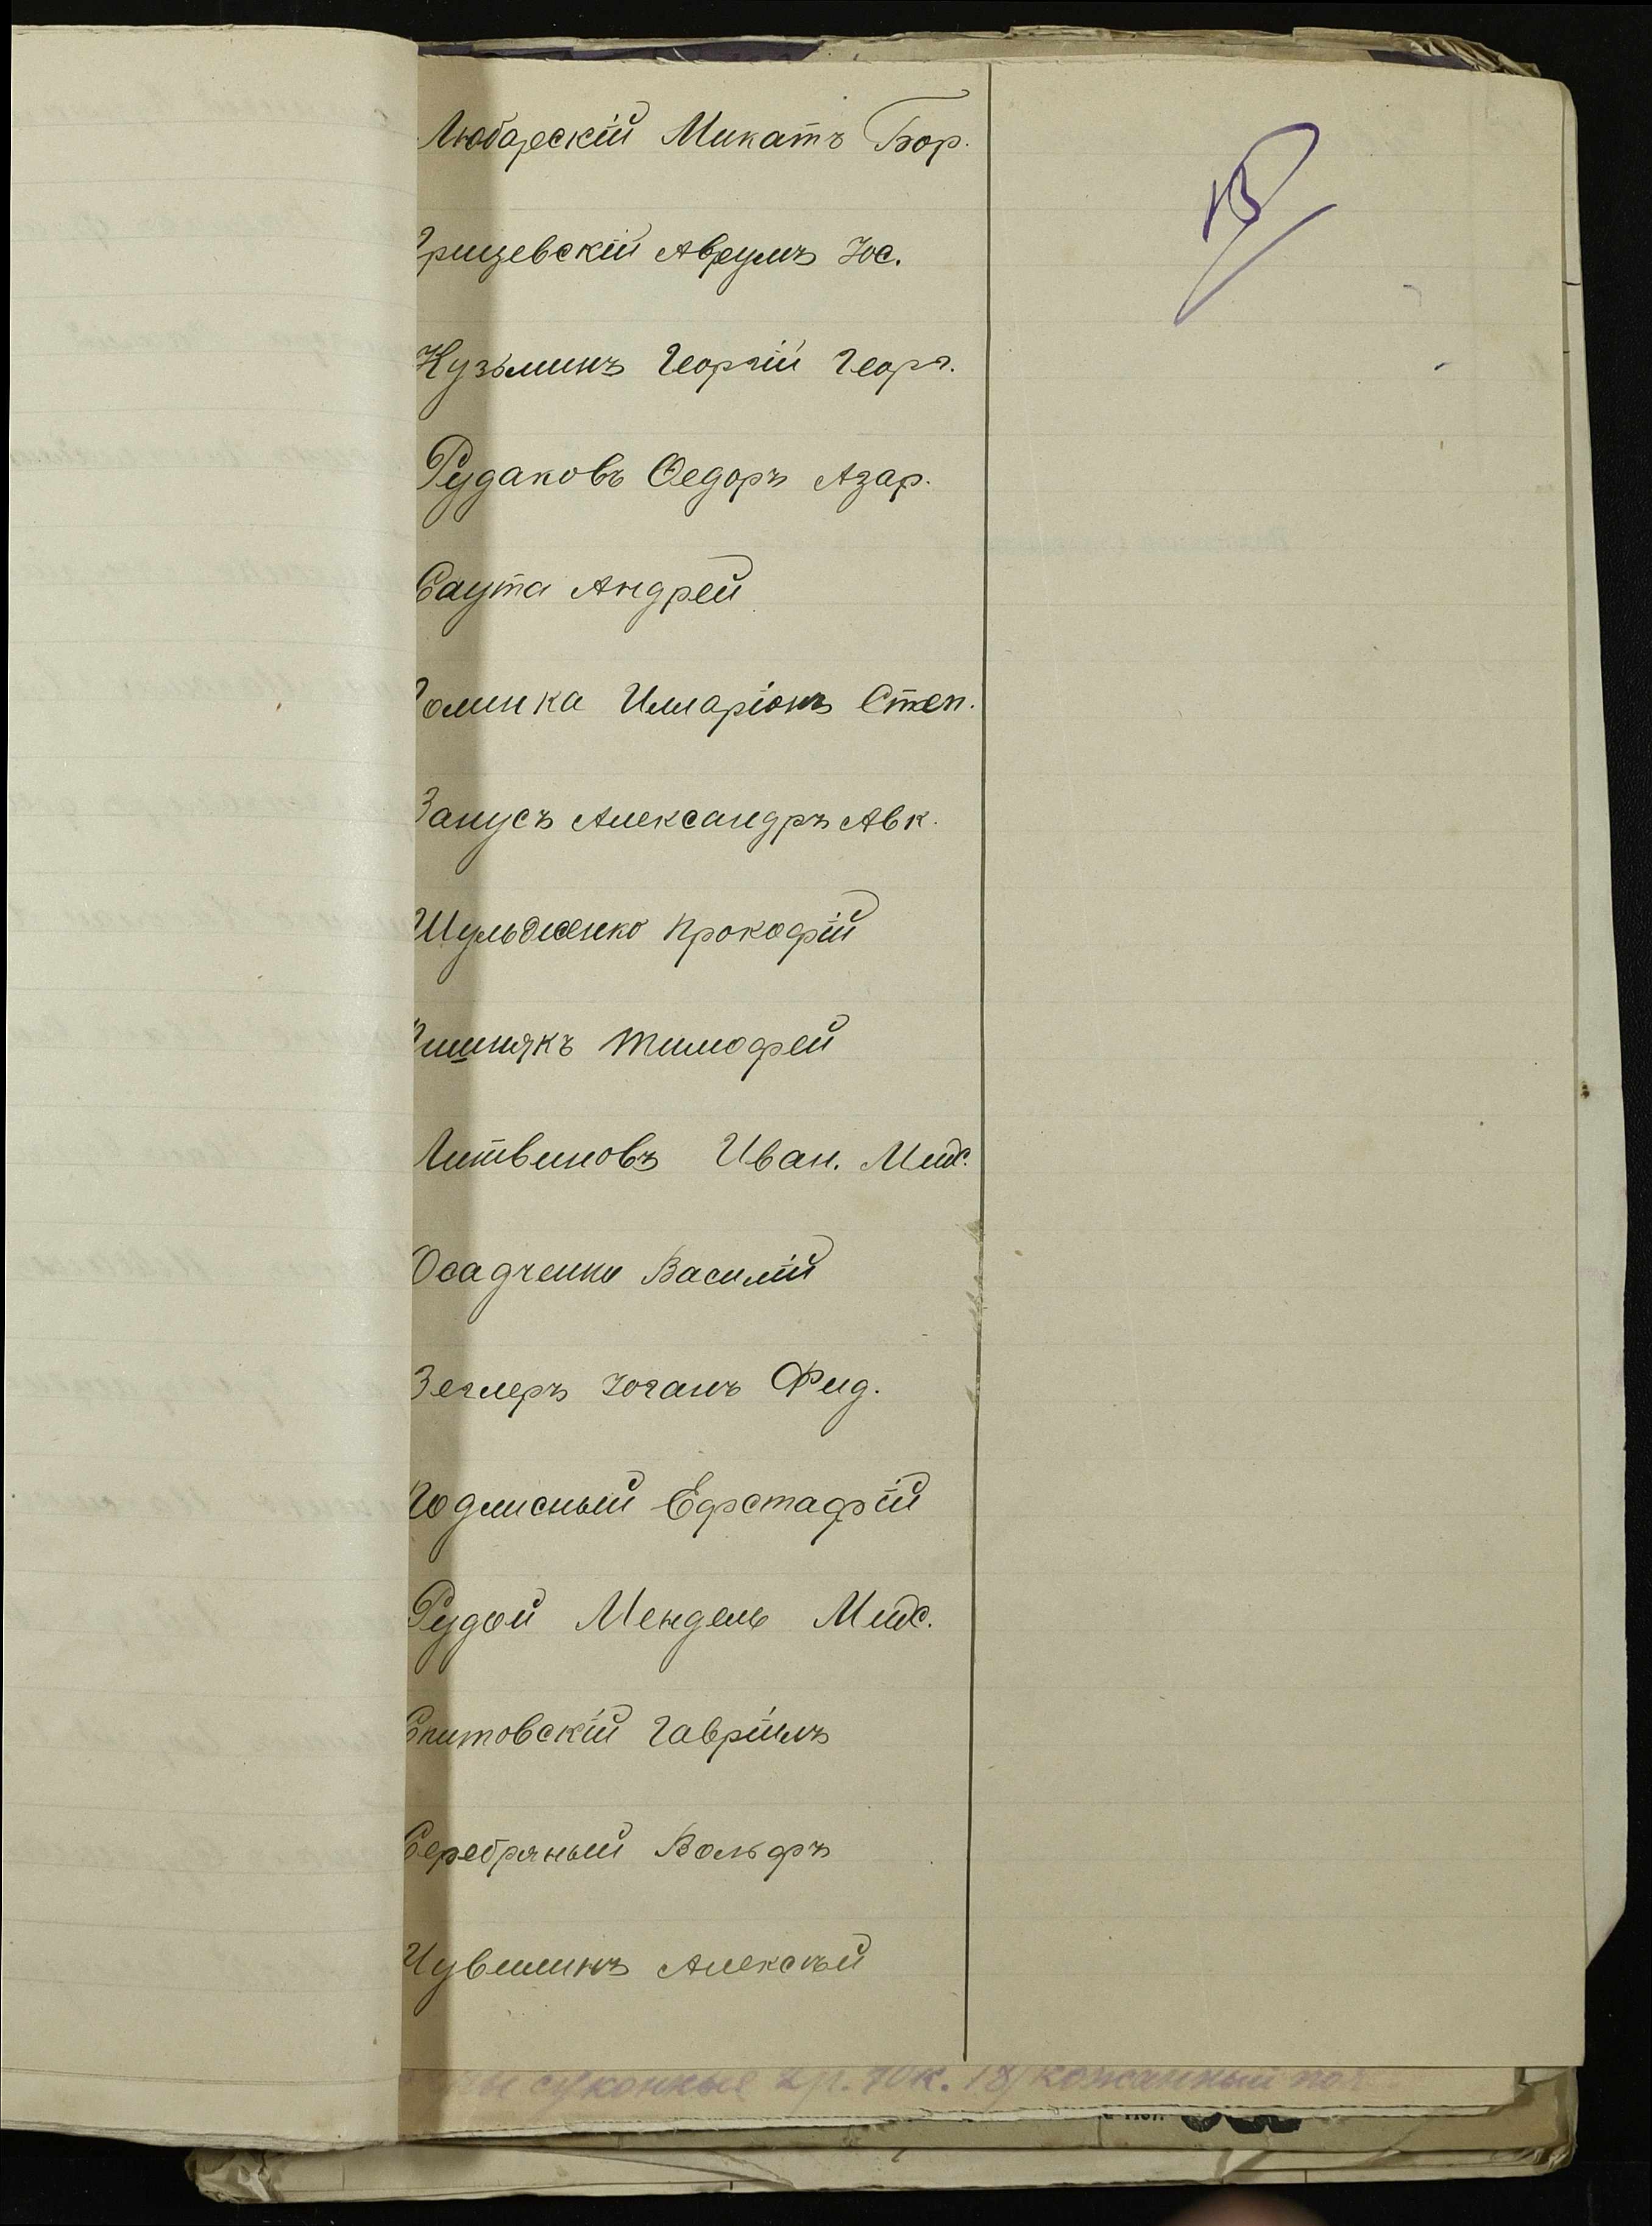 Любарскій Микатъ Бор.
Грищевскій Аврумъ Іос.
Кузьминъ Георгій Георг.
Рудаковъ Ѳедоръ Азар.
Саута Андрей
Голинка Илларіонъ Степ.
Занусъ Александръ Авк.
Шульженко Прокофій
Тимофей
Литвиновъ Иван. Мих.
Осадченко Василій
Зеглеръ Іоганъ Фид.
Подлисный Ефстафій
Рудой Мендель Мих.
Снитовскій Гавріилъ
Серебряный Вольфъ
Чувилинъ Алексѣй
суконные 2 р. 70 к. 18) кожанный